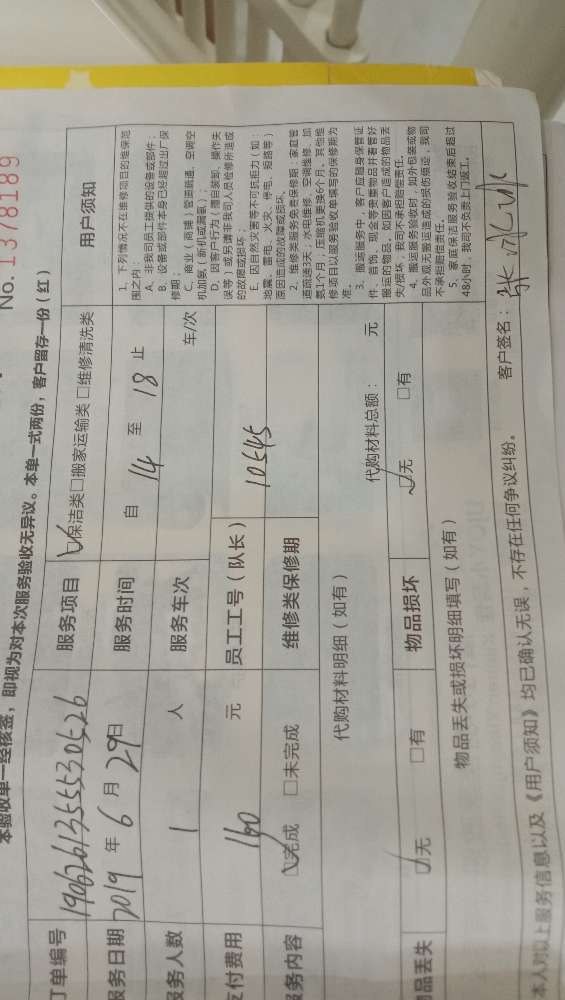 No.1378189
本验收单一经核签，即视为对本次服务验收无异议。本单一式两份，客户留存一份（红）
订单编号 1906261355530526 服务项目 ☑保洁类 □搬家运输类 □维修清洗类
服务日期 2019 年 6 月 29 日 服务时间 自 14 至 18 止
服务人数 1 人 服务车次 车/次
支付费用 160 元 员工工号（队长） 10545
服务内容 ☑完成 □未完成 维修类保修期
代购材料明细（如有） 代购材料总额： 元
物品丢失 ☑无 □有 物品损坏 ☑无 □有
物品丢失或损坏明细填写（如有）
用户须知
1、下列情况不在维修项目的维保范
围之内：
A、非我司员工提供的设备或部件.
B、设备或部件本身已经超过出厂保
修期；
C、商业（商铺）管道疏通、空调空
机加氨,（新机或漏氨）；
D、因客户行为（擅自装卸、操作失
误等）或另请非我司人员检修所造成
的故障或损坏；
E、因自然灾害等不可抗拒力（如：
地震、雷电、火灾、停电、短路等）
原因造成的故障或损坏。
2、维修类服务免费保修期：家庭管
道疏通3天，水电维修、空调维修、加
氨1个月，压缩机更换6个月。其他维
修项目以服务验收单填写的保修期为
准。
3、搬运服务中，客户应随身保管证
件、首饰、现金等贵重物品并看管好
搬运的物品。如因客户造成的物品丢
失/损坏，我司不承担赔偿责任。
4、搬运服务验收时，如外包装或物
品外观无搬运造成的受损痕迹，我司
不承担赔偿责任。
5、家庭保洁服务验收结束后超过
48小时，我司不负责上门返工。
本人对以上服务信息以及《用户须知》均已确认无误，不存在任何争议纠纷。 客户签名：张